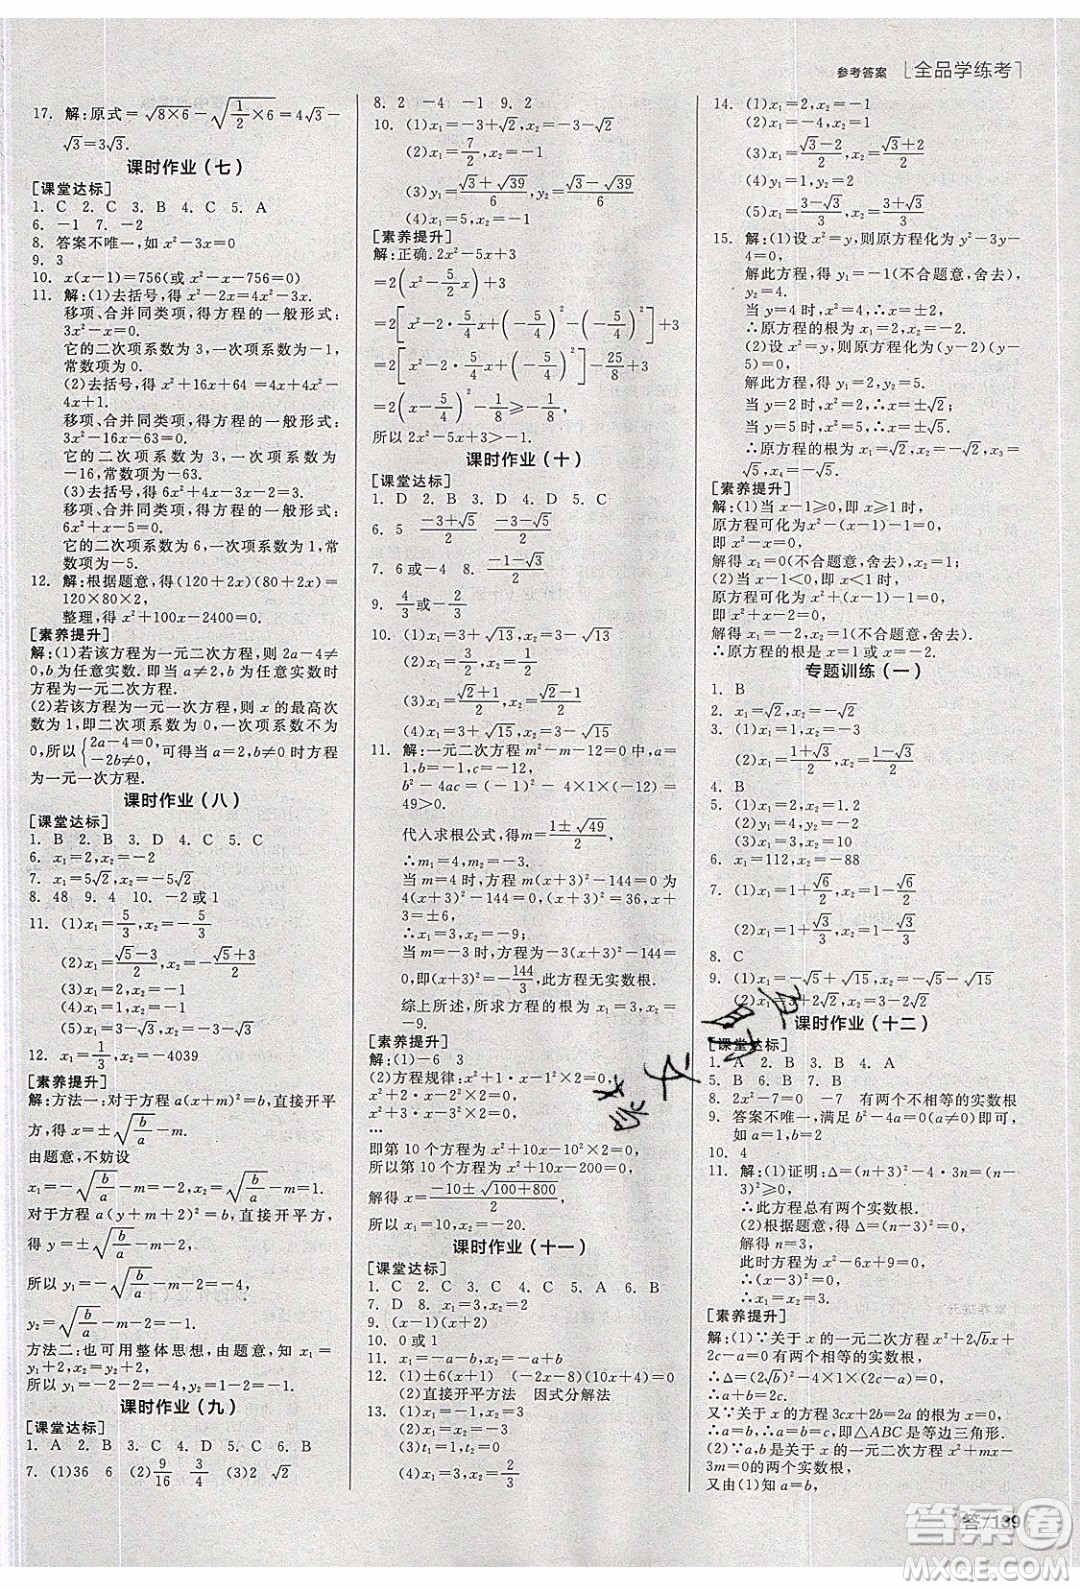 参考答案 [全品学练考]
17. 解:原式=√(8×6)-√(1/2×6)=4√3-
√3=3√3.
课时作业(七)
[课堂达标]
1. C 2. C 3. C 4. B 5. A
6. -1 7. -2
8. 答案不唯一,如 x²-3x=0
9. 3
10. x(x-1)=756(或 x²-x-756=0)
11. 解:(1)去括号,得 x²-2x=4x²-3x.
移项、合并同类项,得方程的一般形式:
3x²-x=0.
它的二次项系数为 3,一次项系数为-1,
常数项为 0.
(2)去括号,得 x²+16x+64=4x²-
4x+1.
移项、合并同类项,得方程的一般形式:
3x²-20x-63=0.
它的二次项系数为 3,一次项系数为
常数项为-63.
(3)去括号,得
移项、合并同类项,得方程的一般形式:
它的二次项系数为 6,一次项系数为
常数项为-5.
12. 解:根据题意,得(120+2x)(80+2x)=
120×80×2,
整理,得 x²+100x-2400=0.
[素养提升]
解:(1)若该方程为一元二次方程,则 2a-4≠0,
b 为任意实数.即当 a≠2,b 为任意实数时
方程为一元二次方程.
(2)若该方程为一元一次方程,则 x 的最高次
数为 1,即二次项系数为 0,一次项系数不为
0,所以{2a-4=0,-2b≠0,可得当 a=2,b≠0 时方程
为一元一次方程.
课时作业(八)
[课堂达标]
1. B 2. B 3. D 4. C 5. C
6. x₁=2,x₂=-2
7. x₁=5√2,x₂=-5√2
8. 48 9. 4 10. -2 或 1
11. (1)x₁=5/3,x₂=-5/3
(2)x₁=(√5-3)/2,x₂=-(√5+3)/2
(3)x₁=2,x₂=-1
(4)x₁=0,x₂=-1
(5)x₁=3-√3,x₂=-3-√3
12. x₁=1/3,x₂=-4039
[素养提升]
解:方法一:对于方程 a(x+m)²=b,直接开平
方,得 x=±√(b/a)-m.
由题意,不妨设
x₁=-√(b/a)-m=-2,x₂=√(b/a)-m=1.
对于方程 a(y+m+2)²=b,直接开平方,
得 y=±√(b/a)-m-2,
所以 y₁=-√(b/a)-m-2=-2-2=-4,
y₂=√(b/a)-m-2=1-2=-1.
方法二:也可用整体思想,由题意,知 x₁=
所以 y₁=-2-2=-4,y₂=1-2=-1.
课时作业(九)
[课堂达标]
1. A 2. B 3. D 4. C 5. D 6. B
7. (1)36 6 (2)9/16 3/4 (3)2 √2
8. 2 -4 -1 9. 2
10. (1)x₁=-3+√2,x₂=-3-√2
(2)x₁=7/2,x₂=-1
(3)y₁=(√3+√39)/6,y₂=(√3-√39)/6
(4)x₁=5,x₂=-1
[素养提升]
解:正确. 2x²-5x+3
=2(x²-5/2x)+3
=2[x²-2·5/4x+(-5/4)²-(-5/4)²]+3
=2[x²-2·5/4x+(-5/4)²]-25/8+3
=2(x-5/4)²-1/8≥-1/8,
所以 2x²-5x+3>-1.
课时作业(十)
[课堂达标]
1. D 2. B 3. D 4. D 5. C
6. 5 (-3+√5)/2 (-3-√5)/2
7. 6 或-4 8. (-1-√3)/2
9. 4/3或-1/2
10. (1)x₁=3+√13,x₂=3-√13
(2)x₁=1,x₂=-1/3
(3)x₁=(√2+√10)/2,x₂=(√2-√10)/2
(4)x₁=3+√15,x₂=3-√15
11. 解:一元二次方程 m²-m-12=0 中,a=
1,b=-1,c=-12,
b²-4ac=(-1)²-4×1×(-12)=
49>0,
代入求根公式,得m=(1±√49)/2,
∴m₁=4,m₂=-3.
当 m=4 时,方程 m(x+3)²-144=0 为
4(x+3)²-144=0,(x+3)²=36,
x+3=±6,
∴x₁=3,x₂=-9;
当 m=-3 时,方程为-3(x+3)²-144=
0,即(x+3)²=-144/3,此方程无实数根.
综上所述,所求方程的根为 x₁=3,x₂=
-9.
[素养提升]
解:(1)-6 3
(2)方程规律:x²+x-1²×2=0,
x²+2x-2²×2=0,
x²+3x-3²×2=0,
…
即第 10 个方程为 x²+10x-10²×2=0,
所以第 10 个方程为 x²+10x-200=0,
解得 x=(-10±√(100+800))/2,
所以 x₁=10,x₂=-20.
课时作业(十一)
[课堂达标]
1. C 2. C 3. C 4. C 5. A 6. B
7. D 8. (4) (1) (2) (3)
9. (x-1)(x+2)
10. 0 或 1
11. x₁=-a-b,x₂=-a+b
12. (1)±6(x-1) (2x-8)(-2x-4)
(2)直接开平方法 因式分解法
13. (1)x₁=4,x₂=-2
(2)x₁=2,x₂=4
(3)t₁=1,t₂=2
(4)x₁=3,x₂=-3
14. (1)x₁=2,x₂=1
(2)x₁=-4,x₂=1
(3)x₁=(√3-√2)/2,x₂=(√3+√2)/2
(4)x₁=1,x₂=2
(5)x₁=(3-√3)/3,x₂=(3+√3)/3
15. 解:(1)设 x²=y,则原方程化为 y²-3y-
4=0,
解此方程,得 y₁=-1(不合题意,舍去),
y₂=4.
当 y=4 时,x²=4,∴x=±2,
∴原方程的根为 x₁=2,x₂=-2.
(2)设 x²=y,则原方程化为(y-2)(y+
5)=0,
解此方程,得 y₁=2,
当 y=2 时,x²=2,∴x=±√2,
∴原方程的根为 x₁=√2,x₂=-√2,x₃=
[素养提升]
解:(1)当 x-1≥0,即 x≥1 时,
原方程可化为x²-(x-1)-1=0,
即 x²-x=0,
解得 x₁=1,x₂=0(不合题意,舍去);
(2)当 x-1<0,即 x<1 时,
原方程可化为 x²+(x-1)-1=0,
即x²+x-2=0,
解得 x₁=-2,x₂=1(不合题意,舍去).
∴原方程的根是 x=1 或 x=-2.
专题训练(一)
1. B
2. x₁=√2,x₂=-√2
3. (1)x₁=3,x₂=1
(2)x₁=(1+√3)/3,x₂=(1-√3)/3
4. B
5. (1)x₁=2,x₂=1.2
(2)x₁=4,x₂=-2
6. x₁=112,x₂=-88
7. (1)x₁=1+√6/2,x₂=1-√6/2
(2)x₁=1+√3/3,x₂=1-√3/3
8. C
9. (1)x₁=√5+√15,x₂=√5-√15
(2)x₁=3+2√2,x₂=3-2√2
课时作业(十二)
[课堂达标]
1. A 2. B 3. B 4. D
5. B 6. B 7. D
8. 2x²-7=0 0 -7 有两个不相等的实数根
9. 答案不唯一,满足 b²=4a(a≠0)即可,
如 a=1,b=2
10. 4
11. 解:(1)证明:Δ=(n+3)²-4·3n=(n-
3)²≥0,
∴此方程总有两个实数根.
(2)根据题意,得 Δ=(n-3)²=0,
解得 n=3,
此时方程为 x²-6x+9=0,
∴x₁=x₂=3.
[素养提升]
解:(1)∵关于 x 的一元二次方程 x²+2√bx+
有两个相等的实数根,
又∵关于 x 的方程 3cx+2b=2a 的根为x=0,
∴a=b,∴a=b=c,即△ABC 是等边三角形.
(2)∵a,b 是关于 x 的一元二次方程 x²+mx-
3m=0 的两个实数根,
又由(1)知 a=b,
答/139
答案圈
MXQE.COM